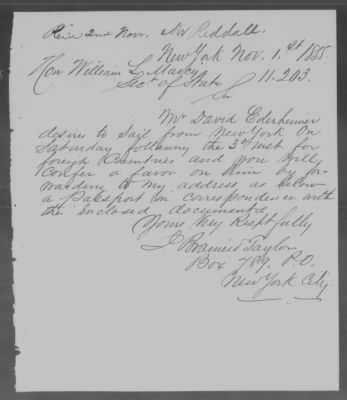 Rec'd 2nd Nov. Mr Reddall.
New York Nov. 1.st 1855.
Hon William L. Marcy
Sec.y of State 11.203.
Sir
Mr David Ederheimer
desires to sail from New York on
Saturday following the 3d inst for
foreign Countries and you will
confer a favor on him by for-
warding to my address as below
a Passport in correspondence with
the enclosed documents
Yours Very Respfully
J Brainerd Taylor
Box 789. P.O.
New York City.